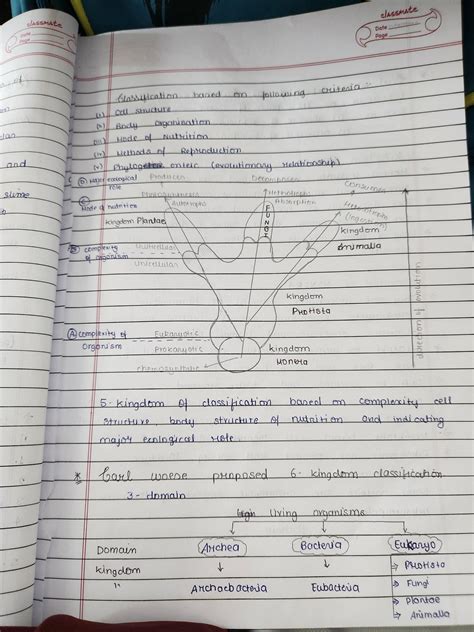 classmate
Date
Page
classmate
Date
Page
Classification based on following criteria :-
(i) Cell structure
(ii) Body Organisation
(iii) Mode of Nutrition
(iv) Methods of Reproduction
(v) Phylogenetic (evolutionary relationship)
(D) Major ecological role
Producers
Decomposers
Consumers
(C) Mode of nutrition
Photosynthesis
Autotrophs
Heterotroph
Absorption
Heterotroph
(ingestion)
Kingdom Plantae
FUNGI
kingdom
Animalia
(B) Complexity of organism
Multicellular
Unicellular
kingdom
Protista
direction of evolution
(A) Complexity of Organism
Eukaryotic
Prokaryotic
kingdom
Monera
5- kingdom of classification based on complexity cell
structure, body structure of nutrition and indicating
major ecological role.
* Carl woese proposed 6- kingdom classification
3- domain
living organisms
Domain
Archea
Bacteria
Eukaryo
kingdom
Archaebacteria
Eubacteria
→ Protista
→ Fungi
→ Plantae
→ Animalia
and
slime